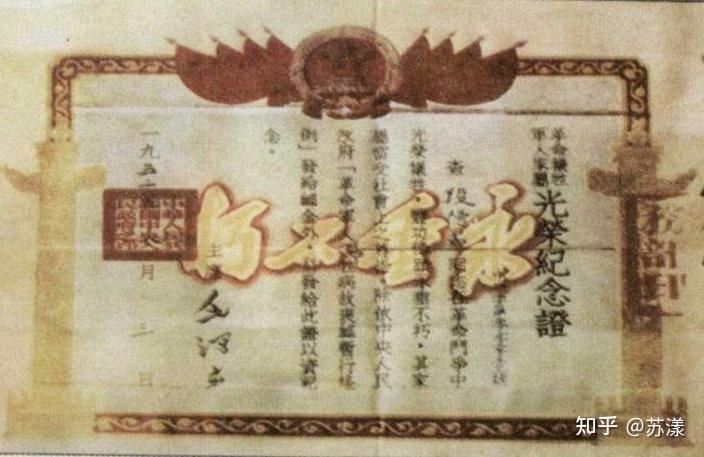 革命犧牲
軍人家屬
光榮紀念證
查段德昌同志在革命鬥爭中
光榮犧牲,豐功偉績永垂不朽,其家
屬當受社會上之尊崇。除依中央人民
政府「革命軍人犧牲病故褒卹暫行條
例」發給卹金外,並發給此證以資紀
念。
主席 毛澤東
一九五二年 月 三 日
永垂不朽
知乎 @苏漾